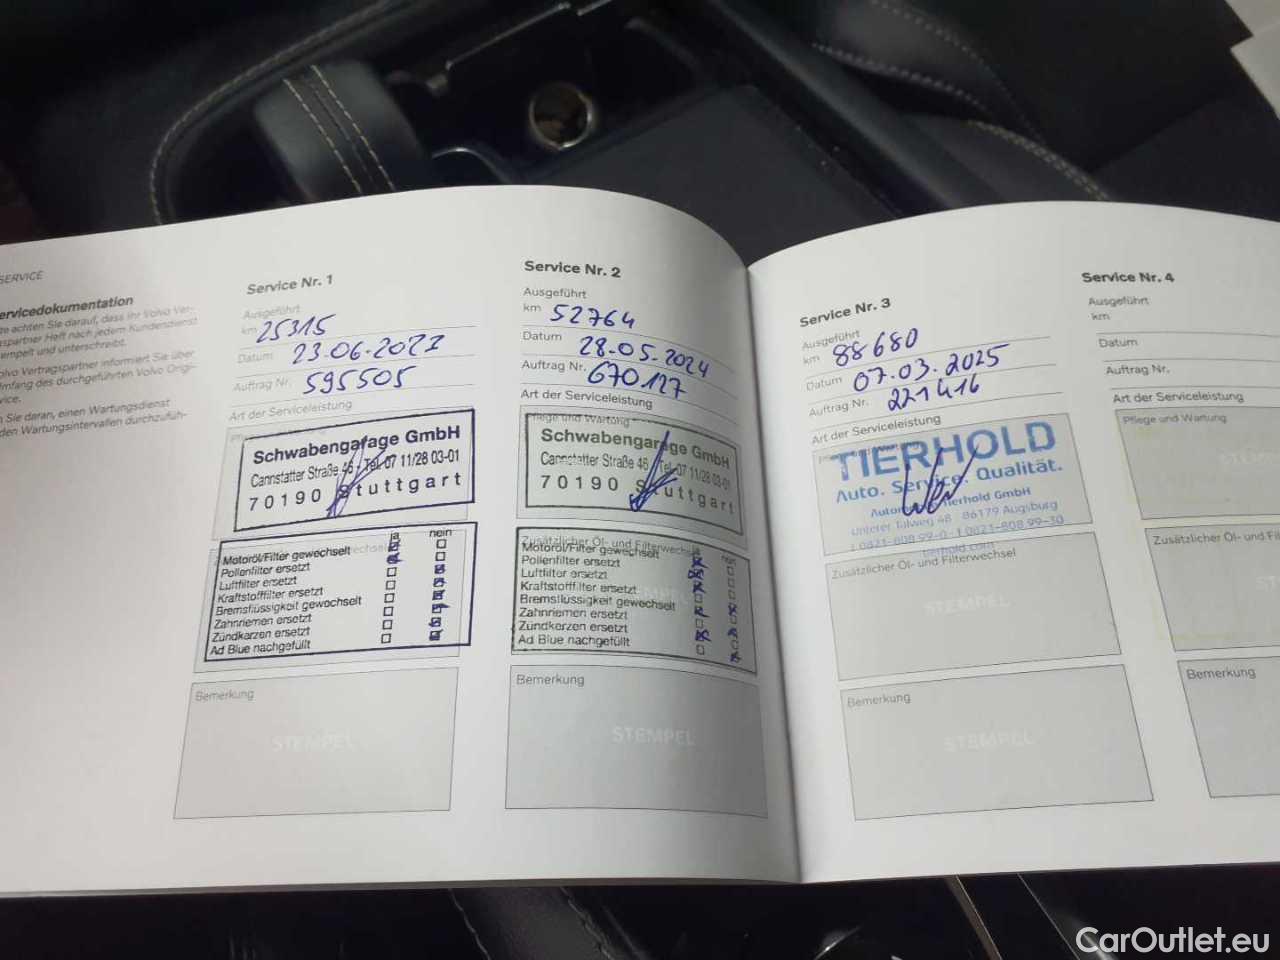 SERVICE
Servicedokumentation
te achten Sie darauf, dass Ihr Volvo Ver-
gspartner Heft nach jedem Kundendienst
empelt und unterschreibt.
olvo Vertragspartner informiert Sie über
mfang des durchgeführten Volvo Origi-
vice.
n Sie daran, einen Wartungsdienst
den Wartungsintervallen durchzufüh-
Service Nr. 1
Ausgeführt
km 25315
Datum 23.06.2023
Auftrag Nr. 595505
Art der Serviceleistung
Schwabengarage GmbH
Cannstatter Straße 46 - Tel. 07 11/28 03-01
70190 Stuttgart
ja nein
Motoröl/Filter gewechselt
Pollenfilter ersetzt
Luftfilter ersetzt
Kraftstofffilter ersetzt
Bremsflüssigkeit gewechselt
Zahnriemen ersetzt
Zündkerzen ersetzt
Ad Blue nachgefüllt
Bemerkung
STEMPEL
Service Nr. 2
Ausgeführt
km 52764
Datum 28.05.2024
Auftrag Nr. 670127
Art der Serviceleistung
Pflege und Wartung
Schwabengarage GmbH
Cannstatter Straße 46 - Tel. 07 11/28 03-01
70190 Stuttgart
Zusätzlicher Öl- und Filterwechsel
ja nein
Motoröl/Filter gewechselt
Pollenfilter ersetzt
Luftfilter ersetzt
Kraftstofffilter ersetzt
Bremsflüssigkeit gewechselt
Zahnriemen ersetzt
Zündkerzen ersetzt
Ad Blue nachgefüllt
Bemerkung
STEMPEL
Service Nr. 3
Ausgeführt
km 88680
Datum 07.03.2025
Auftrag Nr. 221416
Art der Serviceleistung
TIERHOLD
Auto. Service. Qualität.
Tierhold GmbH
Unterer Talweg 48 · 86179 Augsburg
t 0821-808 99-0 · f 0821-808 99-30
tierhold.com
Zusätzlicher Öl- und Filterwechsel
STEMPEL
Bemerkung
STEMPEL
Service Nr. 4
Ausgeführt
km
Datum
Auftrag Nr.
Art der Serviceleistung
Pflege und Wartung
STEMP
Zusätzlicher Öl- und Fil
STEMP
Bemerkung
CarOutlet.eu